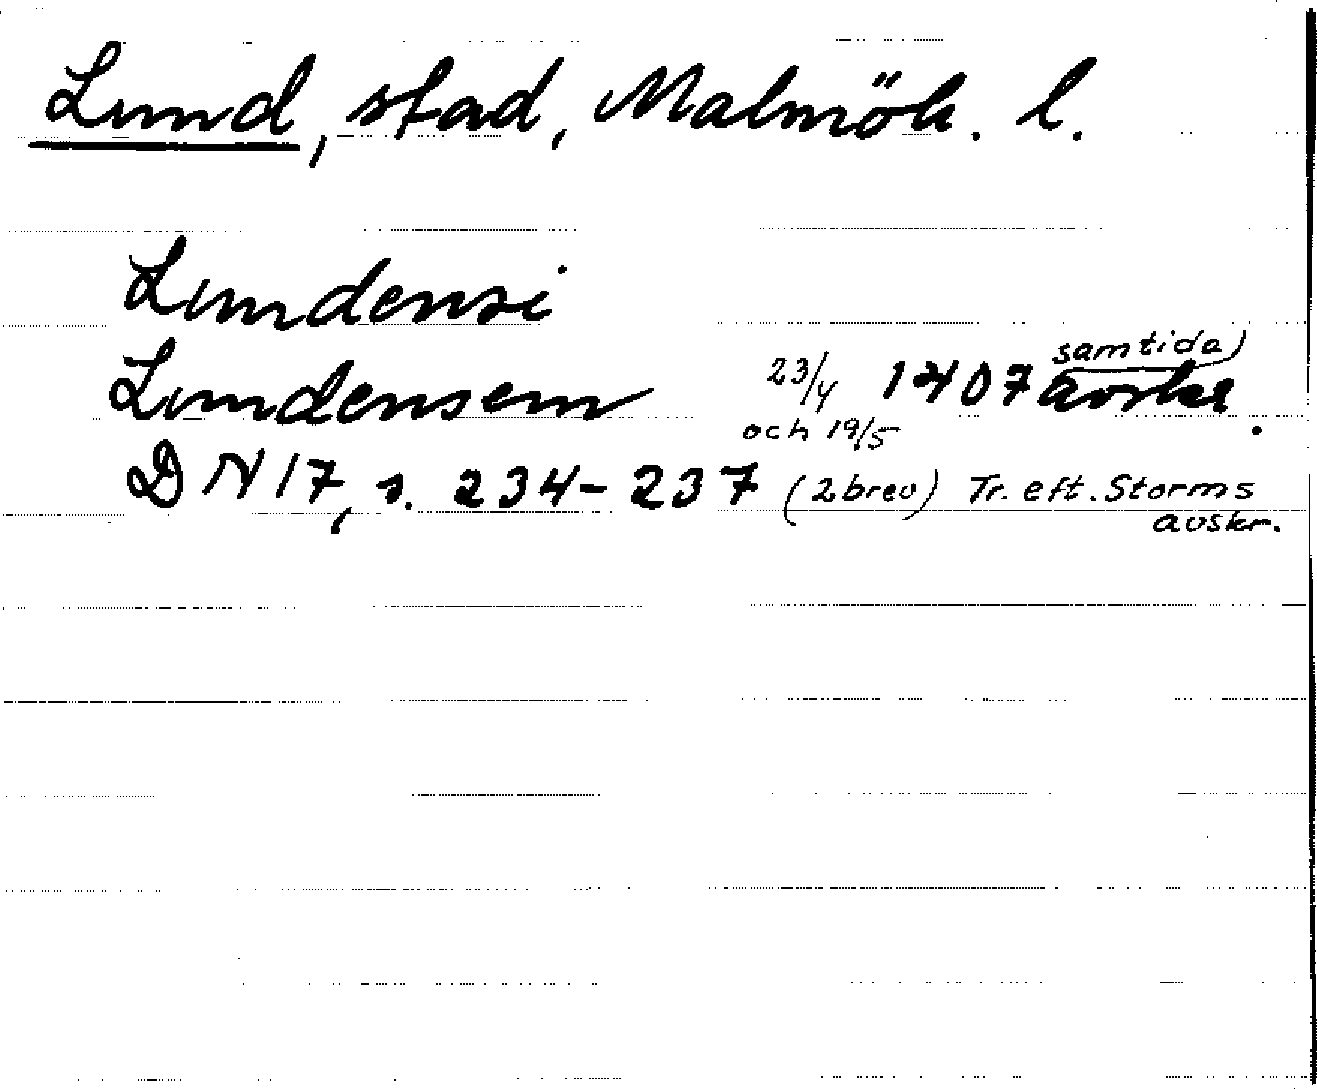 Lund, stad, Malmöh. l.
Lundensi
Lundensem 23/4 1407 samtida) avskr.
och 19/5
DN 17, s. 234-237 (2 brev) Tr. eft. Storms
avskr.